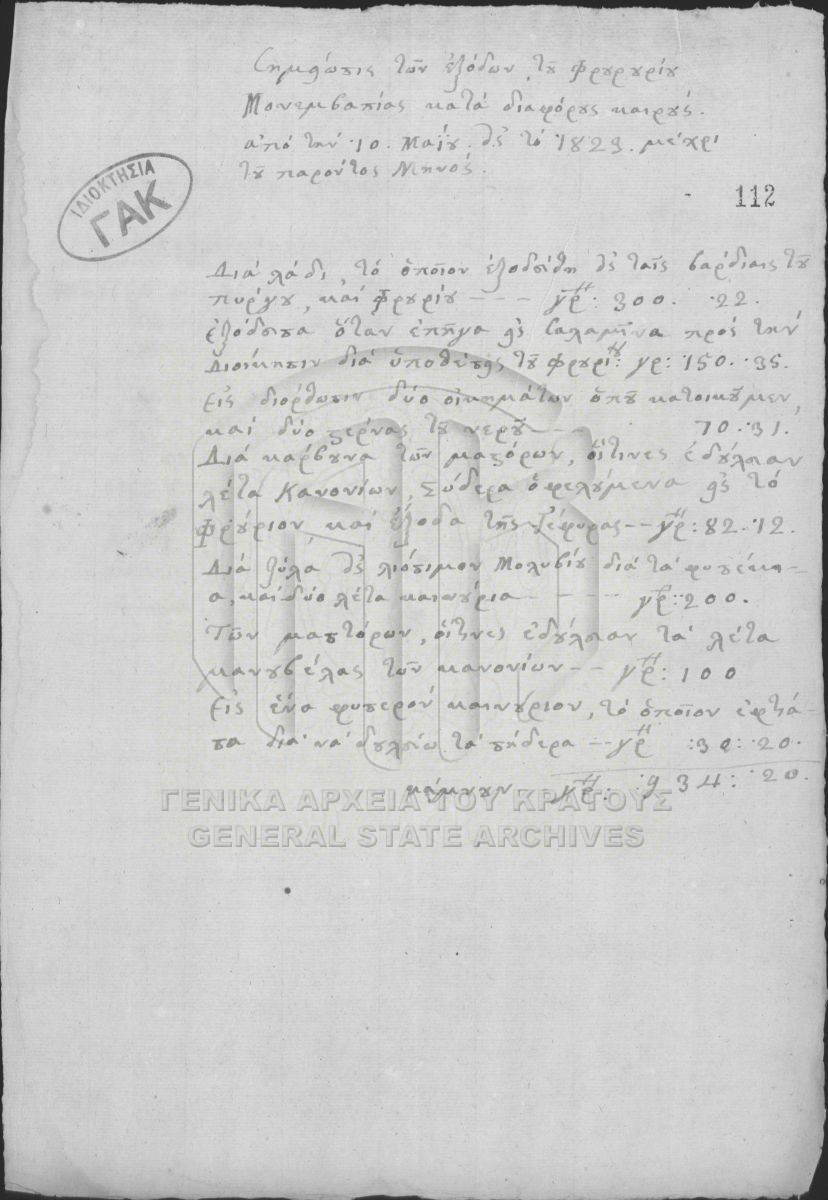 Σημείωσις τῶν ἐξόδων τοῦ Φρουρίου
Μονεμβασίας κατὰ διαφόρους καιρούς.
ἀπὸ τὴν 10. Μαΐου. εἰς τὸ 1823. μέχρι
τοῦ παρόντος Μηνός.
ΙΔΙΟΚΤΗΣΙΑ
ΓΑΚ
112
Διὰ λάδι, τὸ ὁποῖον ἐξοδεύθη εἰς ταῖς βάρδιαις τοῦ
πύργου, καὶ Φρουρίου --- γρ: 300. 22.
ἐξόδευσα ὅταν ἐπῆγα εἰς Σαλαμῖνα πρὸς τὴν
Διοίκησιν διὰ ὑποθέσεις τοῦ Φρουρίου: γρ: 150. 35.
Εἰς διόρθωσιν δύο οἰκημάτων ὁποῦ κατοικοῦμεν,
καὶ δύο στέρνας τοῦ νεροῦ -- 70. 31.
Διὰ κάρβουνα τῶν μαστόρων, οἵτινες ἐδούλευαν
λέτα Κανονίων, σύδερα ὀφελούμενα εἰς τὸ
Φρούριον καὶ ἔξοδα τῆς γέφυρας -- γρ: 82. 12.
Διὰ ξύλα εἰς λιόσιμον Μολυβίου διὰ τὰ φυσέκι-
α, καὶ δύο λέτα καινούρια ---- γρ: 200.
Τῶν μαστόρων, οἵτινες ἐδούλευαν τὰ λέτα
μανουβέλας τῶν κανονίων -- γρ: 100
Εἰς ἕνα φυσερὸν καινούριον, τὸ ὁποῖον ἔφτια-
σα διὰ νὰ δουλεύω τὰ σήδερα -- γρ: 32: 20.
κάμνουν γρ: 934: 20.
ΓΕΝΙΚΑ ΑΡΧΕΙΑ ΤΟΥ ΚΡΑΤΟΥΣ
GENERAL STATE ARCHIVES